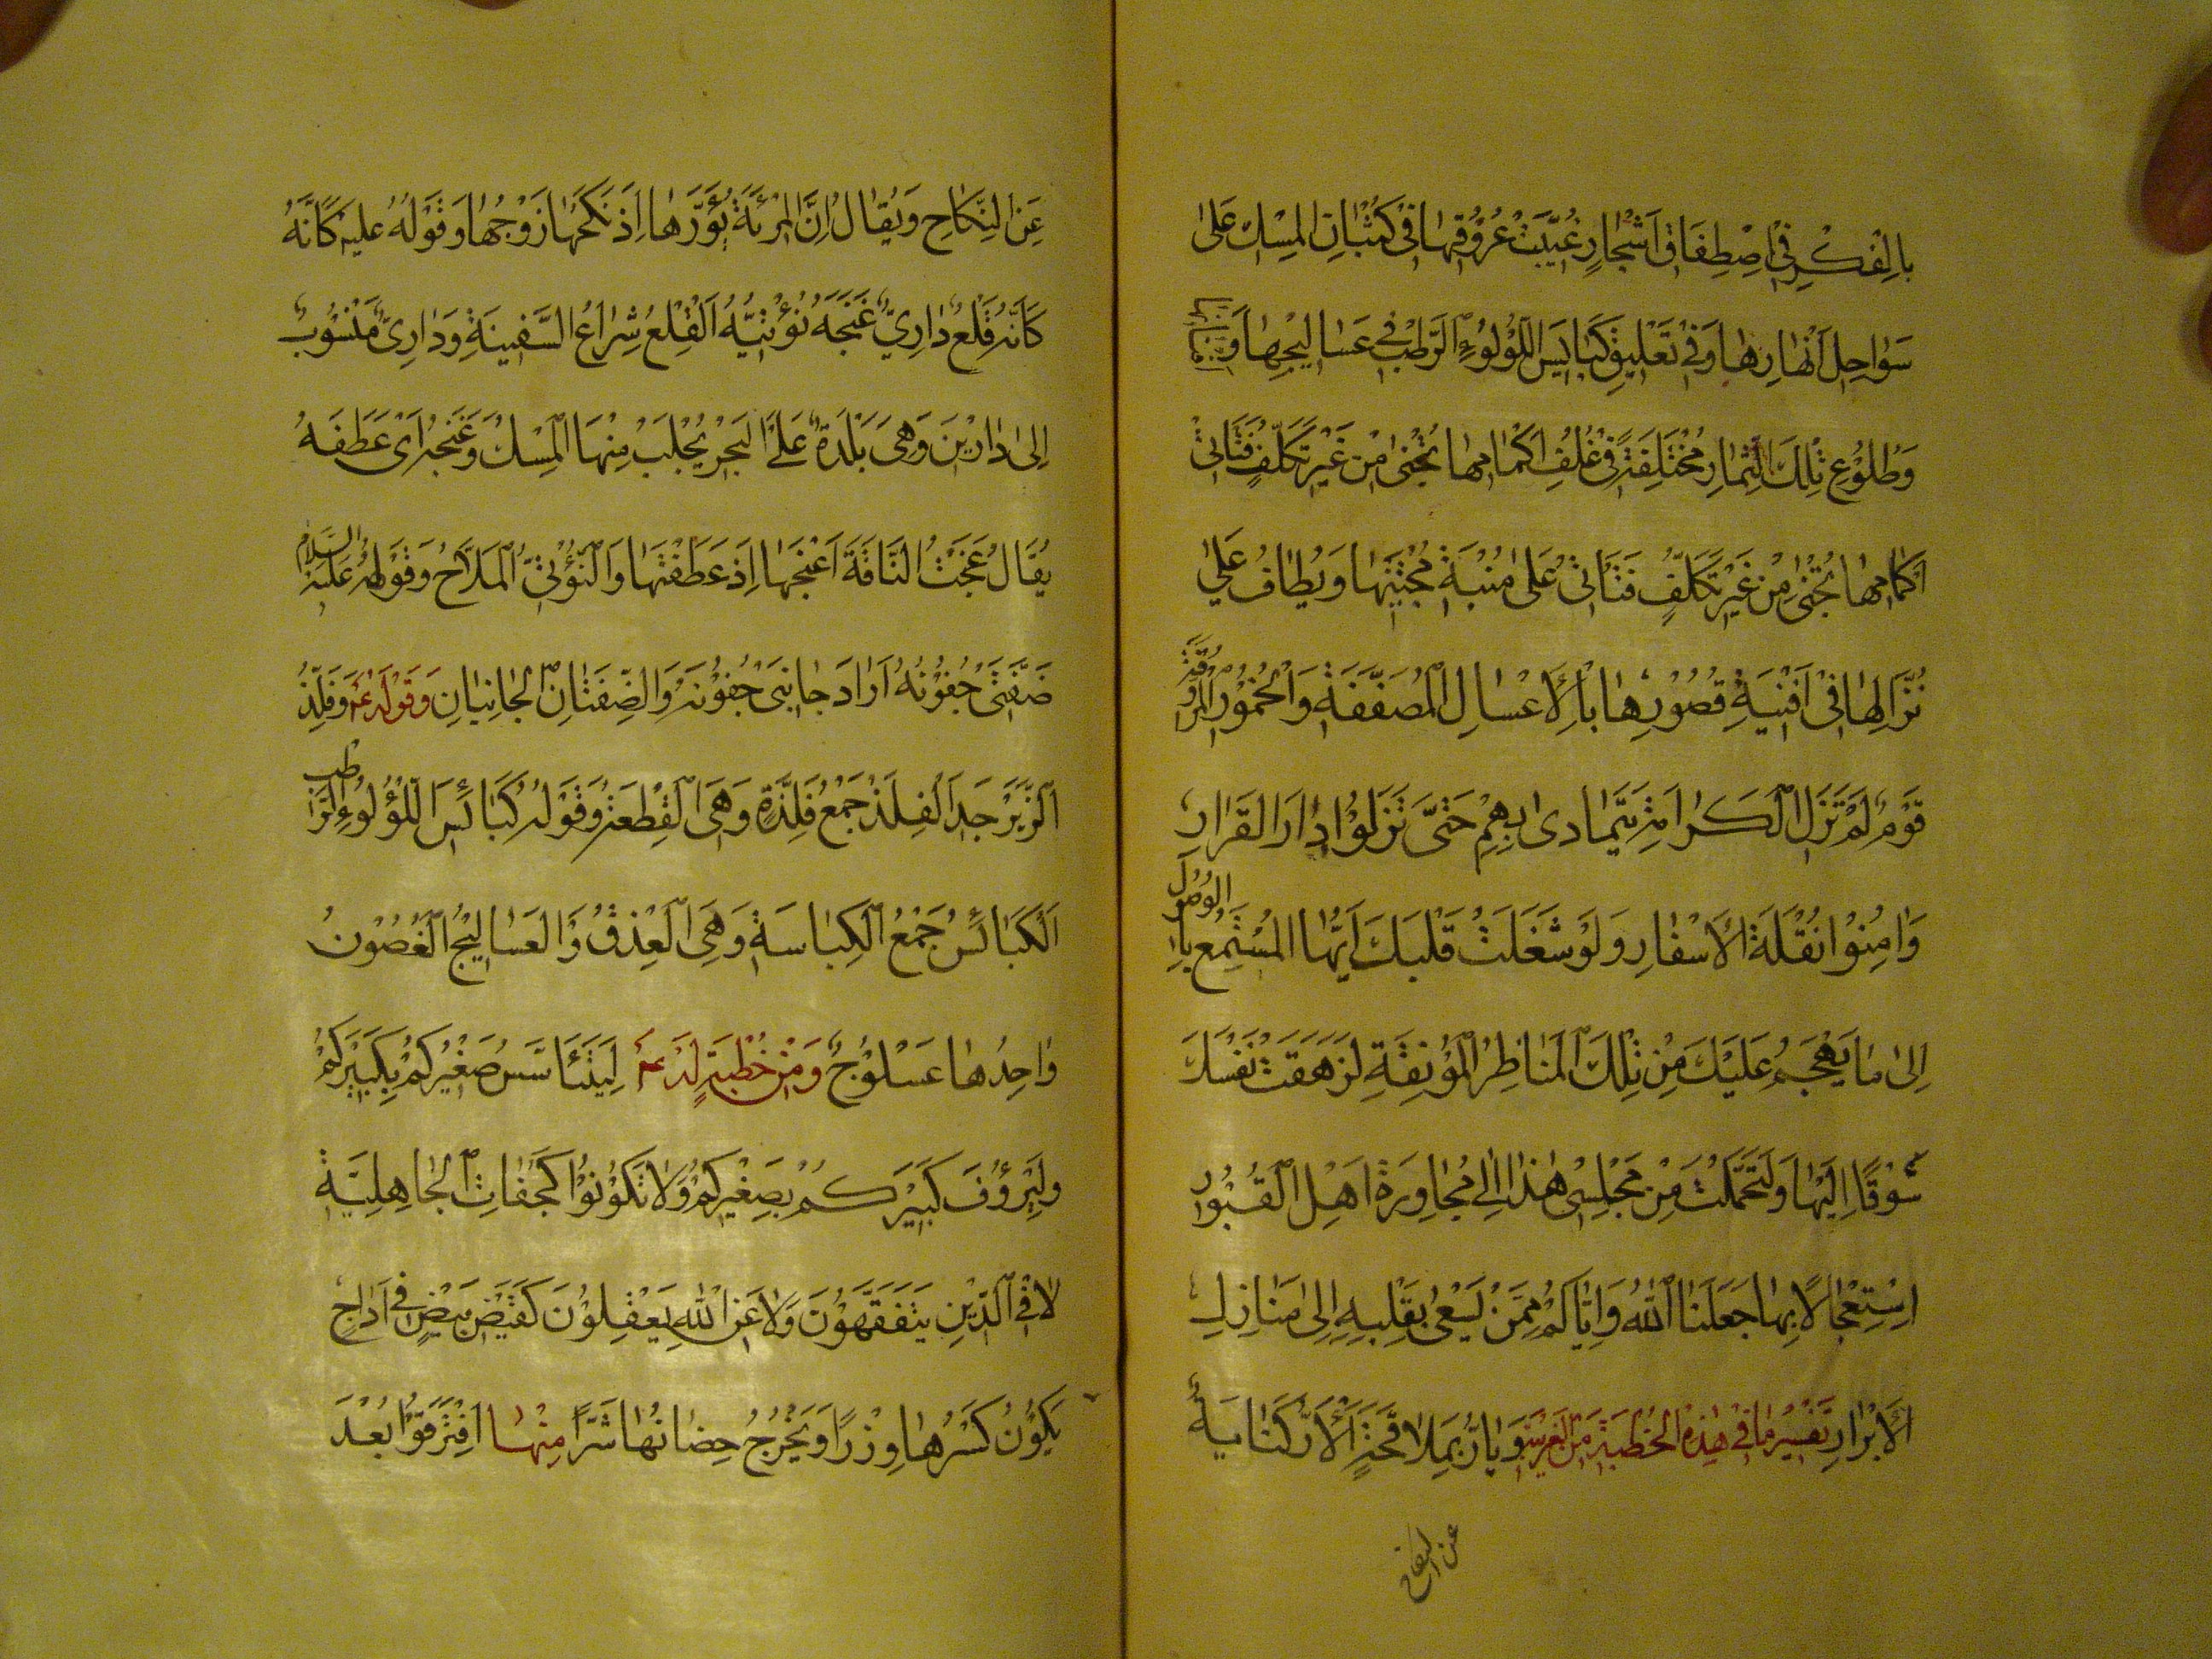 بِالْفِكْرِ فِي اصْطِفَاقِ اَشْجَارٍ غُيِّبَتْ عُرُوْقُهَا فِيْ كُثْبَانِ الْمِسْكِ عَلٰى
سَوَاحِلِ اَنْهَارِهَا وَفِيْ تَعْلِيْقِ كَبَايِسِ اللُّؤْلُوءِ الرَّطْبِ فِي عَسَالِيْجِهَا وَ
وَطُلُوْعِ تِلْكَ الثِّمَارِ مُخْتَلِفَةً فِيْ غُلُفِ اَكْمَامِهَا تُجْنٰى مِنْ غَيْرِ تَكَلُّفٍ فَتَاتِيْ
اَكْمَامِهَا تُجْنٰى مِنْ غَيْرِ تَكَلُّفٍ فَتَاتِيْ عَلٰى مُنْيَةِ مُجْتَنِيْهَا وَيُطَافُ عَلٰي
نُزَّالِهَا فِيْ اَفْنِيَةِ قُصُوْرِهَا بِالْاَعْسَالِ الْمُصَفَّقَةِ وَالْخُمُوْرِ الْمُرَوَّقَةِ
قَوْمٌ لَمْ تَزَلِ الْكَرَامَةُ تَتَمَادٰى بِهِمْ حَتّٰى نَزَلُوْا دَارَ الْقَرَارِ
وَاَمِنُوْا نُقْلَةَ الْاَسْفَارِ وَلَوْ شَغَلْتَ قَلْبَكَ اَيُّهَا الْمُسْتَمِعُ بِالْوُصُوْلِ
اِلٰى مَا يَهْجُمُ عَلَيْكَ مِنْ تِلْكَ الْمَنَاظِرِ الْمُوْنِقَةِ لَزَهَقَتْ نَفْسُكَ
شَوْقًا اِلَيْهَا وَلَتَحَمَّلْتَ مِنْ مَجْلِسِيْ هٰذَا اِلٰى مُجَاوَرَةِ اَهْلِ الْقُبُوْرِ
اِسْتِعْجَالًا بِهَا جَعَلَنَا اللهُ وَاِيَّاكُمْ مِمَّنْ يَسْعٰى بِقَلْبِهٖ اِلٰى مَنَازِلِ
الْاَبْرَارِ تَفْسِيْرُ مَا فِيْ هٰذِهِ الْخُطْبَةِ مِنَ الْغَرِيْبِ وَيَاُرُّ بِمَلَاقِحَةٍ اَلْاَرُّ كِنَايَةٌ
عن النكاح
عَنِ النِّكَاحِ وَيُقَالُ اِنَّ الْمَرْئَةَ يَؤُرُّهَا اِذَ نَكَحَهَا زَوْجُهَا وَقَوْلُهُ عليه كَاَنَّهُ
كَاَنَّهُ قَلْعُ دَارِيٍّ عَنَجَهُ نُوْتِيُّهُ اَلْقَلْعُ شِرَاعُ السَّفِيْنَةِ وَدَارِيٌّ مَنْسُوْبٌ
اِلٰى دَارِيْنَ وَهِيَ بَلْدَةٌ عَلَى الْبَحْرِ يُجْلَبُ مِنْهَا الْمِسْكُ وَعَنَجَهُ اَيْ عَطَفَهُ
يُقَالُ عَنَجْتُ النَّاقَةَ اَعْنِجُهَا اِذَ عَطَفْتَهَا وَالنُّوْتِيُّ الْمَلَّاحُ وَقَوْلُهُ عَلَيْهِ السَّلَامُ
ضَفَّتَيْ جُفُوْنِهُ اَرَادَ جَانِبَيْ جُفُوْنِهِ وَالضِّفَتَانِ الْجَانِبَانِ وَقَوْلُهُ عم وَفِلَذِ
الزَّبَرْجَدِ الْفِلَذُ جَمْعُ فِلْذَةٍ وَهِيَ الْقِطْعَةُ وَقَوْلُهُ كَبَائِسِ اللُّؤْلُوءِ الرَّطْبِ
اَلْكَبَائِسُ جَمْعُ الْكِبَاسَةِ وَهِيَ الْعِذْقُ وَالْعَسَالِيْجُ الْغُصُوْنُ
وَاحِدُهَا عُسْلُوْجٌ وَمِنْ خُطْبَةٍ لَهُ عم لِيَتَئَاسَّ صَغِيْرُكُمْ بِكَبِيْرِكُمْ
وَلْيَرْؤُفْ كَبِيْرُكُمْ بِصَغِيْرِكُمْ وَلَا تَكُوْنُوْا كَجُفَاتِ الْجَاهِلِيَّةِ
لَا فِي الدِّيْنِ يَتَفَقَّهُوْنَ وَلَا عَنِ اللهِ يَعْقِلُوْنَ كَقَيْضِ بَيْضٍ فِي اَدَاحٍ
يَكُوْنُ كَسْرُهَا وِزْرًا وَيُخْرِجُ حِضَانُهَا شَرًّا مِنْهَا اِفْتَرَقُوْا بَعْدَ